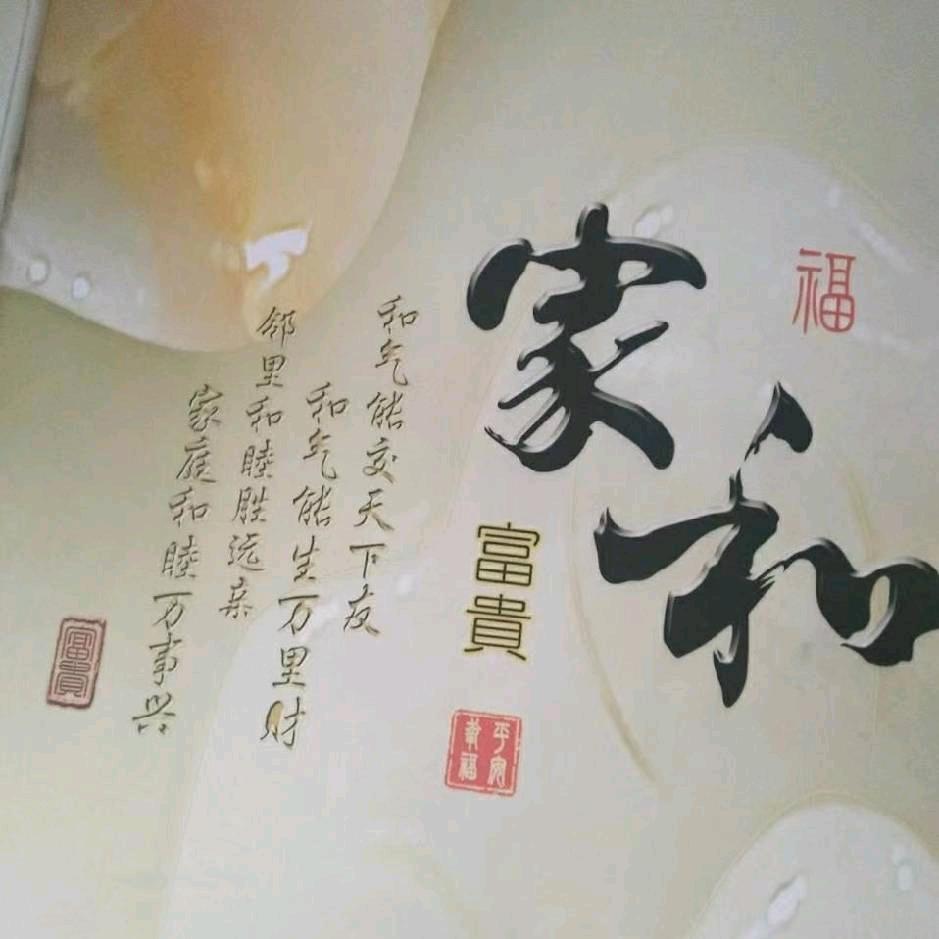 福
家和
富貴
平安
幸福
和气能交天下友
和气能生万里财
邻里和睦胜远亲
家庭和睦万事兴
富貴